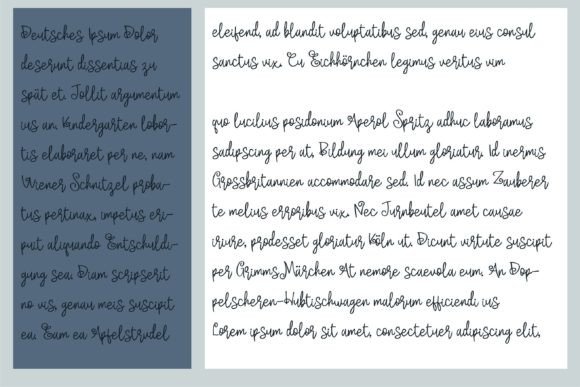 Deutsches Ipsum Dolor
deserunt dissentias zu
spät et. Tollit argumentum
ius an. Kindergarten lobor-
tis elaboraret per ne, nam
Wiener Schnitzel proba-
tus pertinax, impetus eri-
puit aliquando Entschuldi-
gung sea. Diam scripserit
no vis, genau meis suscipit
ea. Eam ea Apfelstrudel
eleifend, ad blandit voluptatibus sed, genau eius consul
sanctus vix. Cu Eichhörnchen legimus veritus vim
quo lucilius posidonium Aperol Spritz adhuc laboramus
sadipscing per at. Bildung mei ullum gloriatur. Id inermis
Grossbritannien accommodare sed. Id nec assum Zauberer
te melius erroribus vix. Nec Turnbeutel amet causae
iriure, prodesset gloriatur Köln ut. Dicunt virtute suscipit
per GrimmsMärchen At nemore scaevola eum. An Dop-
pelscheren-Hubtischwagen malorum efficiendi ius
Lorem ipsum dolor sit amet, consectetuer adipiscing elit.